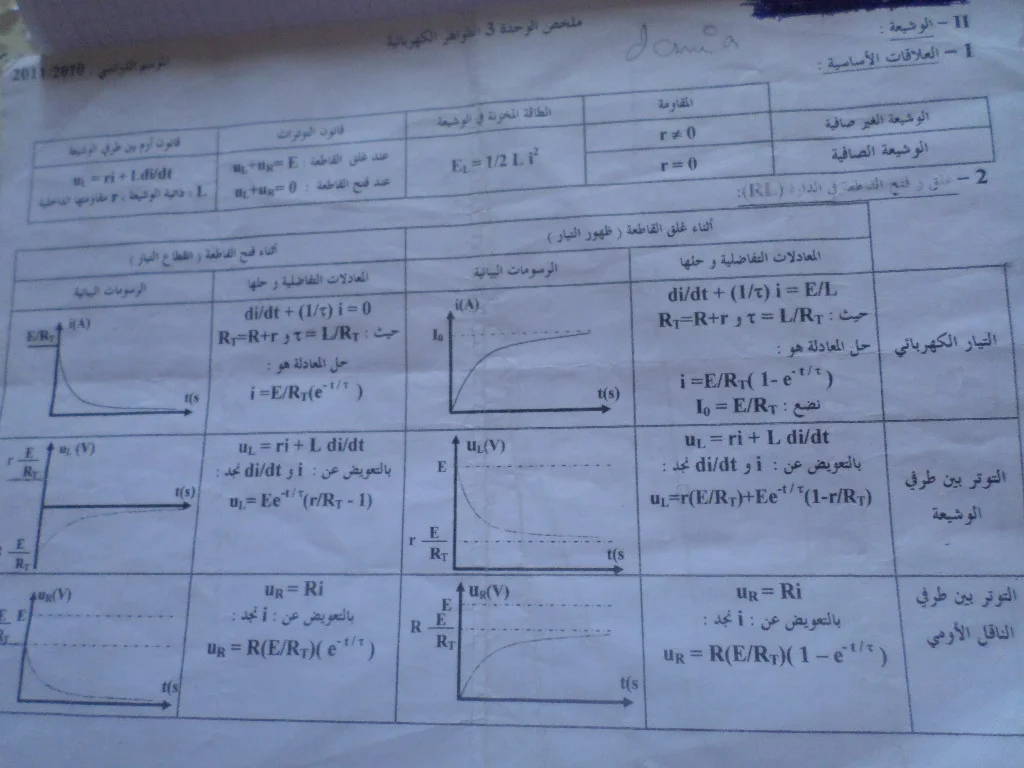 ملخص الوحدة 3 الظواهر الكهربائية
الموسم الدراسي : 2011/2010
damia
II – الوشيعة :
1 – العلاقات الأساسية :
المقاومة
الطاقة المخزنة في الوشيعة
قانون التوترات
قانون أوم بين طرفي الوشيعة
الوشيعة الغير صافية
r ≠ 0
E_L = 1/2 L i²
عند غلق القاطعة : u_L+u_R= E
عند فتح القاطعة : u_L+u_R= 0
u_L = ri + L di/dt
L : ذاتية الوشيعة ، r مقاومتها الداخلية
الوشيعة الصافية
r = 0
2 – غلق و فتح القاطعة في الدارة (RL):
أثناء غلق القاطعة ( ظهور التيار )
أثناء فتح القاطعة ( انقطاع التيار )
المعادلات التفاضلية و حلها
الرسومات البيانية
المعادلات التفاضلية و حلها
الرسومات البيانية
التيار الكهربائي
di/dt + (1/τ) i = E/L
حيث : τ = L/R_T و R_T=R+r
حل المعادلة هو :
i =E/R_T( 1- e^(-t/τ) )
نضع : I₀ = E/R_T
i(A)
I₀
t(s)
di/dt + (1/τ) i = 0
حيث : τ = L/R_T و R_T=R+r
حل المعادلة هو :
i =E/R_T(e^(-t/τ))
i(A)
E/R_T
t(s
التوتر بين طرفي
الوشيعة
u_L = ri + L di/dt
بالتعويض عن : i و di/dt نجد :
u_L=r(E/R_T)+Ee^(-t/τ)(1-r/R_T)
u_L(V)
E
r E/R_T
t(s
u_L = ri + L di/dt
بالتعويض عن : i و di/dt نجد :
u_L= Ee^(-t/τ)(r/R_T - 1)
u_L (V)
r E/R_T
t(s)
E/R_T
التوتر بين طرفي
الناقل الأومي
u_R = Ri
بالتعويض عن : i نجد :
u_R = R(E/R_T)( 1 – e^(-t/τ) )
u_R(V)
E
R E/R_T
t(s
u_R = Ri
بالتعويض عن : i نجد :
u_R = R(E/R_T)( e^(-t/τ) )
u_R(V)
E
t(s